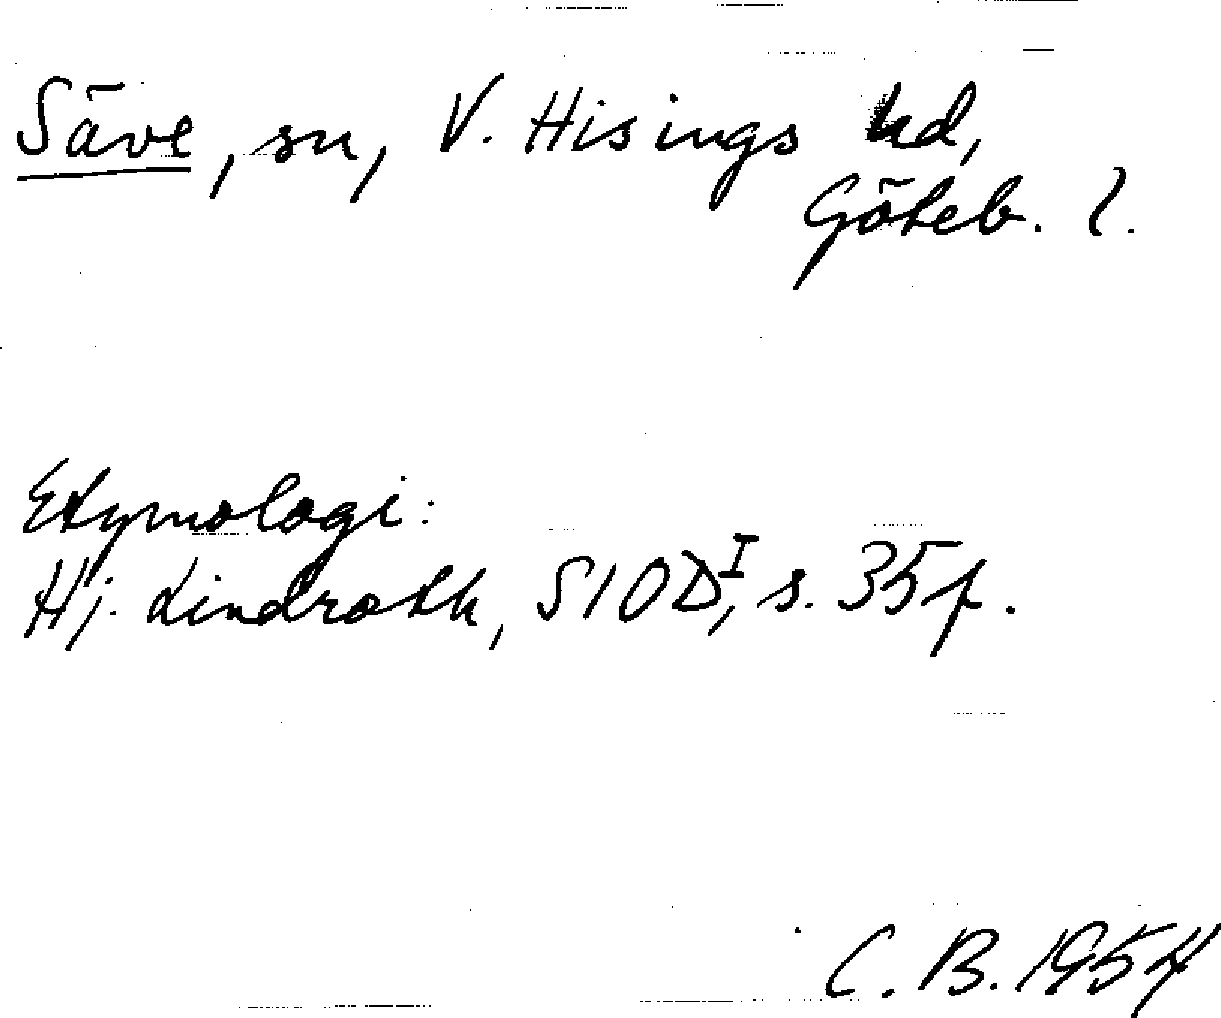 Säve, sn, V. Hisings hd,
Göteb. l.
Etymologi:
Hj. Lindroth, SIOD I, s. 35 f.
C. B. 1954